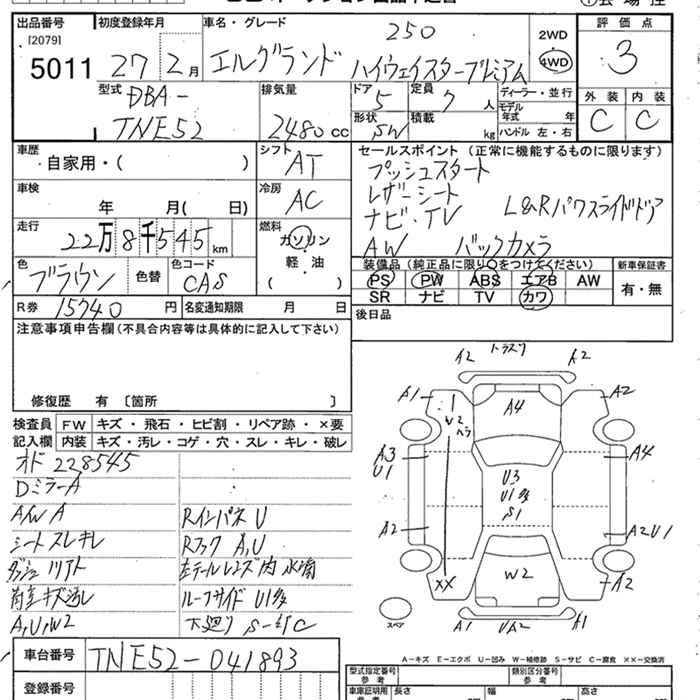 出品番号 初度登録年月 車名・グレード 250 2WD 評価点
[2079]
5011 27 2月 エルグランド ハイウェイスタープレミアム 4WD 3
型式 DBA- 排気量 ドア 5 定員 7人 ディーラー・並行 外装 内装
TNE52 2480cc 形状 SW 積載 kg モデル年式 年 C C
ハンドル 左・右
車歴 自家用・( ) シフト AT セールスポイント (正常に機能するものに限ります)
プッシュスタート
車検 年 月( 日) 冷房 AC レザーシート
ナビ・TV L&Rパワスライドドア
走行 22万8千545km 燃料 ガソリン AW バックカメラ
軽・油
( )
色 ブラウン 色替 色コード CAS 装備品 (純正品に限り○をつけてください) 新車保証書
PS PW ABS エアB AW 有・無
SR ナビ TV カワ
R券 15740円 名変通知期限 月 日 後日品
注意事項申告欄(不具合内容等は具体的に記入して下さい)
修復歴 有 〔箇所 〕
検査員 FW キズ・飛石・ヒビ割・リペア跡・×要
記入欄 内装 キズ・汚レ・コゲ・穴・スレ・キレ・破レ
オド 228545
DミラーA
A/W A RインパネU
シートスレキレ RフックA,U
ダッシュ 左テールレンズ内水滴
キズ汚レ ルーフサイドU1多
A,U,W2 下廻りS-C
車台番号 TNE52-041893
登録番号
トランク
A2 A2
A1 A4 A2
W2
ヘラ
A3 U3 A4
U1 U1多
S1
A2 A2U1
XX W2 A2
スペア A1 UA2 A1
A-キズ E-エクボ U-凹み W-補修跡 S-サビ C-腐食 ××-交換済
型式指定番号 参考 類別区分番号 参考
車庫証明用 参考 長さ 幅 高さ